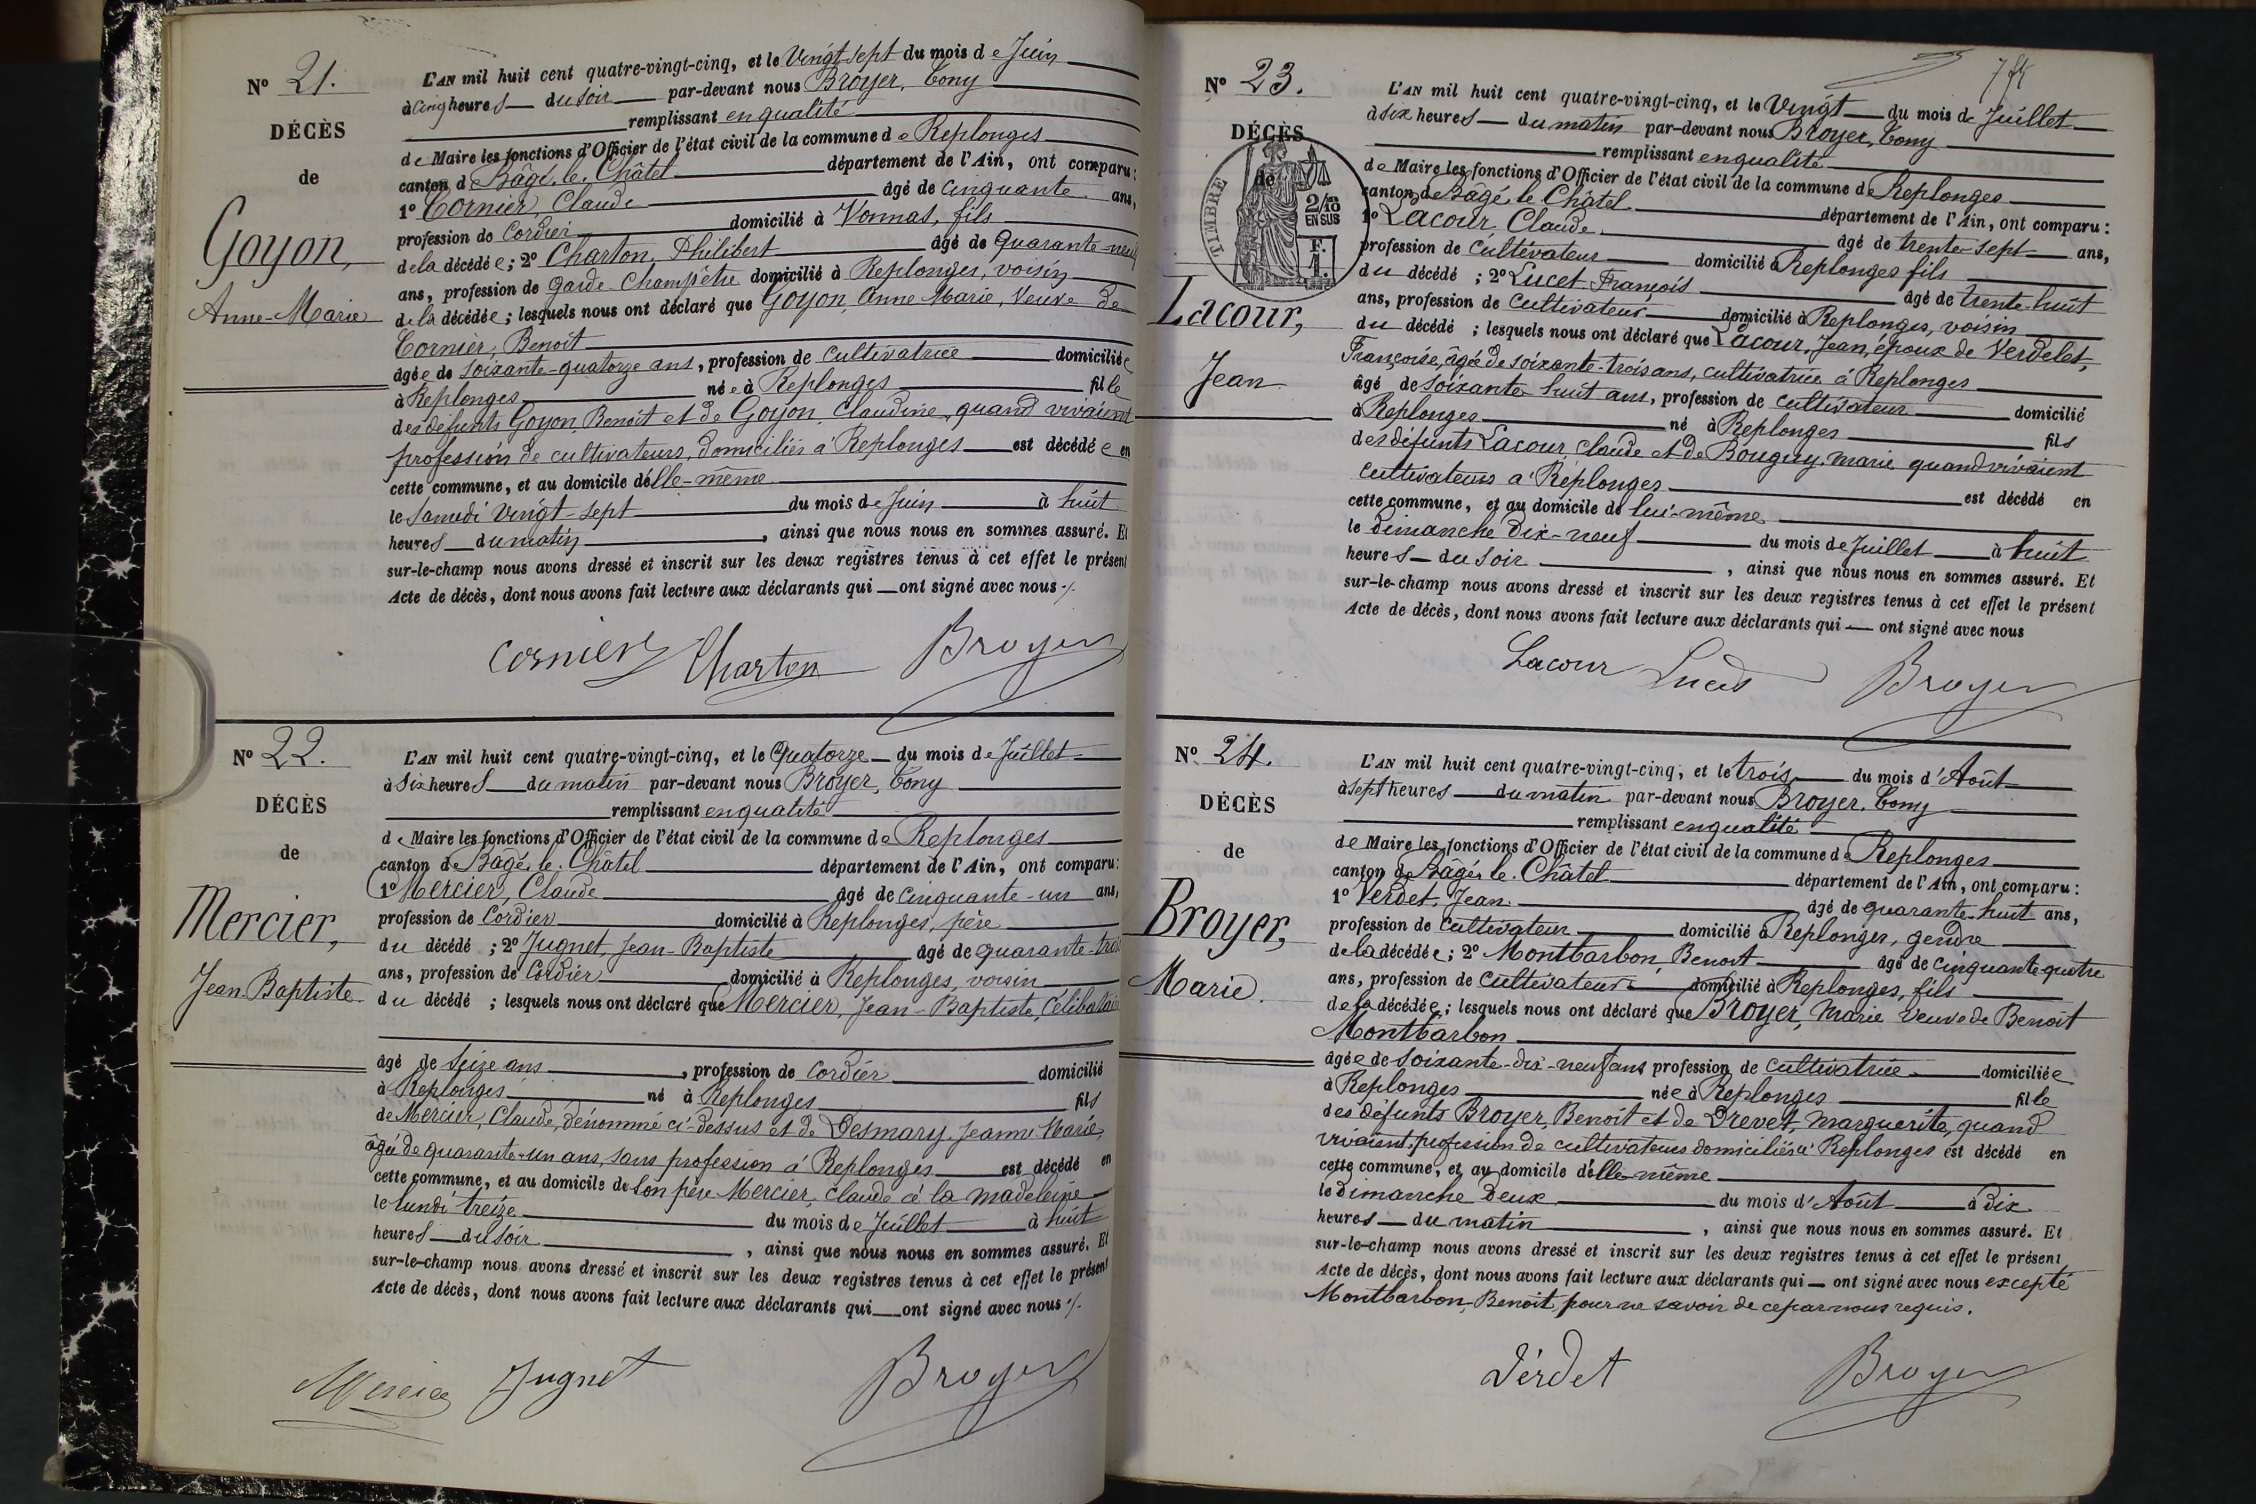 N° 21.
DÉCÈS
de
Goyon,
Anne-Marie
L'AN mil huit cent quatre-vingt-cinq, et le Vingt-sept du mois de Juin
à cinq heures du soir par-devant nous Broyer, Tony
remplissant en qualité
de Maire les fonctions d'Officier de l'état civil de la commune de Replonges
canton de Bâgé-le-Châtel département de l'Ain, ont comparu:
1° Cornier, Claude âgé de cinquante ans,
profession de cordier domicilié à Vonnas, fils
de la décédée; 2° Charton, Philibert âgé de quarante-neuf
ans, profession de garde champêtre domicilié à Replonges, voisin
de la décédée; lesquels nous ont déclaré que Goyon, Anne Marie, Veuve de
Cornier, Benoît
âgée de soixante-quatorze ans, profession de cultivatrice domiciliée
à Replonges née à Replonges fille
des défunts Goyon, Benoît et de Goyon, Claudine, quand vivaient
profession de cultivateurs, domiciliés à Replonges est décédée en
cette commune, et au domicile d'elle-même
le samedi vingt-sept du mois de Juin à huit
heures du matin, ainsi que nous nous en sommes assuré. Et
sur-le-champ nous avons dressé et inscrit sur les deux registres tenus à cet effet le présent
Acte de décès, dont nous avons fait lecture aux déclarants qui ont signé avec nous ./.
Cornier Charton Broyer
N° 22.
DÉCÈS
de
Mercier,
Jean Baptiste
L'AN mil huit cent quatre-vingt-cinq, et le Quatorze du mois de Juillet
à six heures du matin par-devant nous Broyer, Tony
remplissant en qualité
de Maire les fonctions d'Officier de l'état civil de la commune de Replonges
canton de Bâgé-le-Châtel département de l'Ain, ont comparu:
1° Mercier, Claude âgé de cinquante-un ans,
profession de Cordier domicilié à Replonges, père
du décédé; 2° Jugnet, Jean-Baptiste âgé de quarante-trois
ans, profession de Cordier domicilié à Replonges, voisin
du décédé; lesquels nous ont déclaré que Mercier, Jean-Baptiste, célibataire
âgé de seize ans, profession de cordier domicilié
à Replonges né à Replonges fils
de Mercier, Claude, dénommé ci-dessus et de Desmary, Jeanne Marie,
âgée de quarante-un ans, sans profession à Replonges est décédé en
cette commune, et au domicile de son père Mercier, Claude à la madeleine
le lundi treize du mois de Juillet à huit
heures du soir, ainsi que nous nous en sommes assuré. Et
sur-le-champ nous avons dressé et inscrit sur les deux registres tenus à cet effet le présent
Acte de décès, dont nous avons fait lecture aux déclarants qui ont signé avec nous ./.
Mercier Jugnet Broyer
N° 23.
DÉCÈS
de
TIMBRE
2/10
EN SUS
F.
1.
Lacour,
Jean
L'AN mil huit cent quatre-vingt-cinq, et le Vingt du mois de Juillet
à six heures du matin par-devant nous Broyer, Tony
remplissant en qualité
de Maire les fonctions d'Officier de l'état civil de la commune de Replonges
canton de Bâgé-le-Châtel département de l'Ain, ont comparu:
1° Lacour, Claude âgé de trente-sept ans,
profession de cultivateur domicilié à Replonges fils
du décédé; 2° Lucet François âgé de trente-huit
ans, profession de cultivateur domicilié à Replonges, voisin
du décédé; lesquels nous ont déclaré que Lacour, Jean, époux de Verdelet,
Françoise, âgée de soixante-trois ans, cultivatrice à Replonges
âgé de soixante-huit ans, profession de cultivateur domicilié
à Replonges né à Replonges fils
des défunts Lacour, Claude et de Bouguy, marie quand vivaient
cultivateurs à Replonges est décédé en
cette commune, et au domicile de lui-même
le dimanche dix-neuf du mois de Juillet à huit
heures du soir, ainsi que nous nous en sommes assuré. Et
sur-le-champ nous avons dressé et inscrit sur les deux registres tenus à cet effet le présent
Acte de décès, dont nous avons fait lecture aux déclarants qui ont signé avec nous
Lacour Lucet Broyer
N° 24.
DÉCÈS
de
Broyer,
Marie
L'AN mil huit cent quatre-vingt-cinq, et le trois du mois d'Août
à sept heures du matin par-devant nous Broyer, Tony
remplissant en qualité
de Maire les fonctions d'Officier de l'état civil de la commune de Replonges
canton de Bâgé-le-Châtel département de l'Ain, ont comparu:
1° Verdet, Jean âgé de quarante-huit ans,
profession de cultivateur domicilié à Replonges, gendre
de la décédée; 2° Montbarbon, Benoît âgé de cinquante-quatre
ans, profession de cultivateur domicilié à Replonges, fils
de la décédée; lesquels nous ont déclaré que Broyer, Marie Veuve de Benoît
Montbarbon
âgée de soixante-dix-neuf ans profession de cultivatrice domiciliée
à Replonges née à Replonges fille
des défunts Broyer, Benoît et de Drevet, Marguerite, quand
vivaient, profession de cultivateurs domiciliés à Replonges est décédé en
cette commune, et au domicile d'elle-même
le Dimanche deux du mois d'Août à dix
heures du matin, ainsi que nous nous en sommes assuré. Et
sur-le-champ nous avons dressé et inscrit sur les deux registres tenus à cet effet le présent
Acte de décès, dont nous avons fait lecture aux déclarants qui ont signé avec nous excepté
Montbarbon, Benoît, pour ne savoir de ce par nous requis.
Verdet Broyer